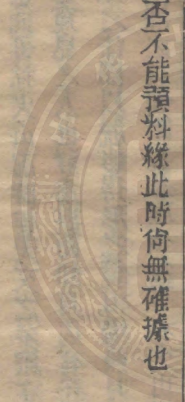 否不能預料緣此時尙無確據也